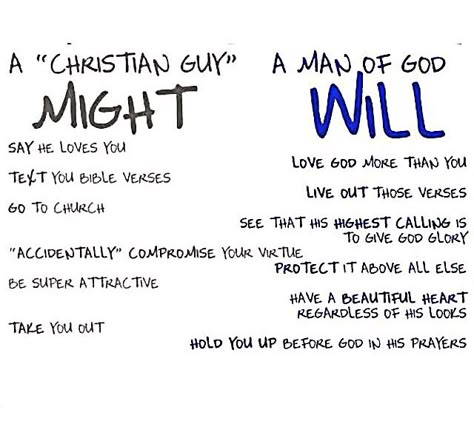 A "CHRISTIAN GUY"
MIGHT
SAY HE LOVES YOU
TEXT YOU BIBLE VERSES
GO TO CHURCH
"ACCIDENTALLY" COMPROMISE YOUR VIRTUE
BE SUPER ATTRACTIVE
TAKE YOU OUT
A MAN OF GOD
WILL
LOVE GOD MORE THAN YOU
LIVE OUT THOSE VERSES
SEE THAT HIS HIGHEST CALLING IS
TO GIVE GOD GLORY
PROTECT IT ABOVE ALL ELSE
HAVE A BEAUTIFUL HEART
REGARDLESS OF HIS LOOKS
HOLD YOU UP BEFORE GOD IN HIS PRAYERS